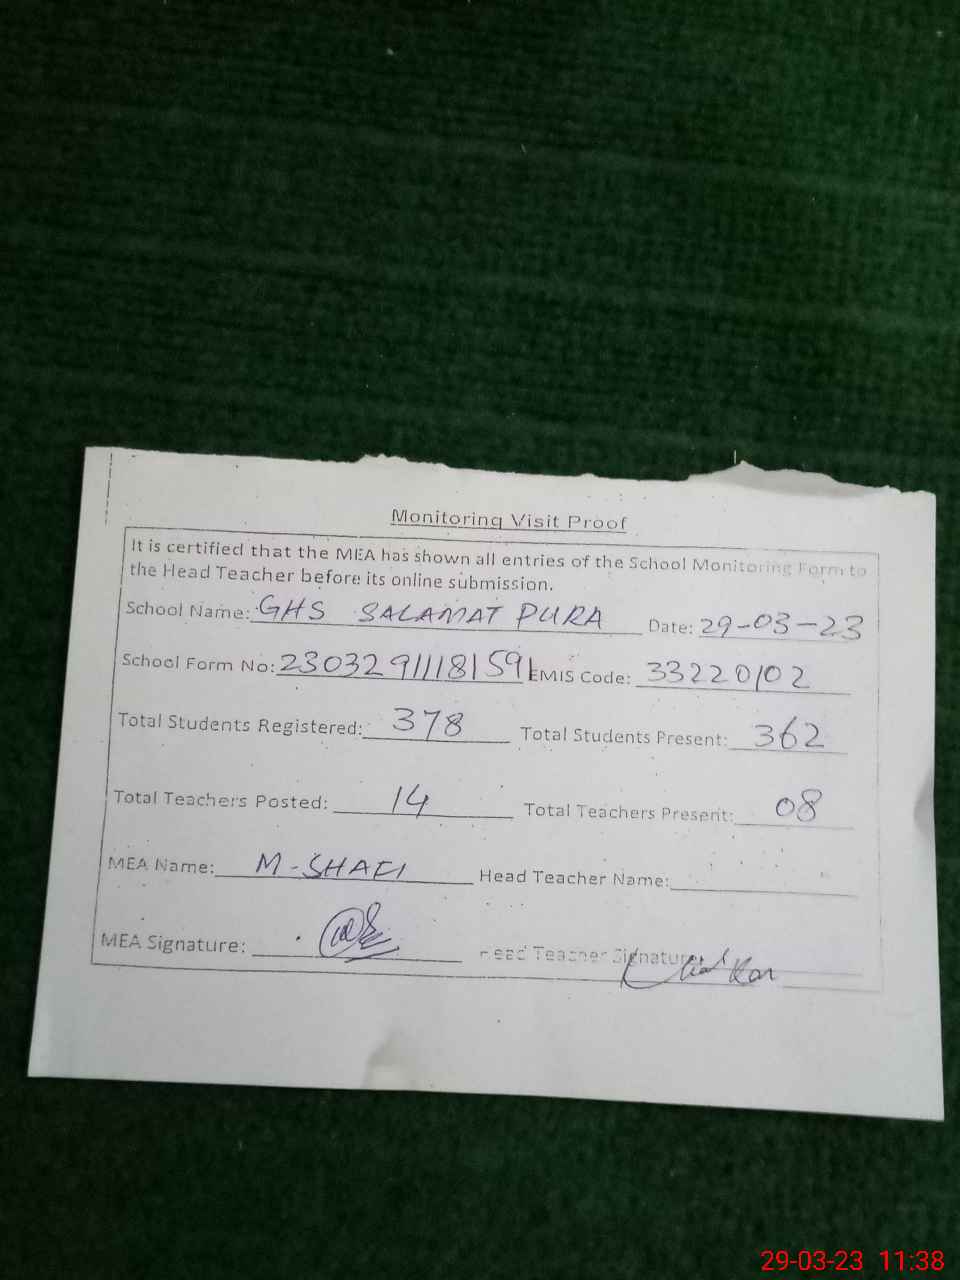 Monitoring Visit Proof
It is certified that the MEA has shown all entries of the School Monitoring Form to
the Head Teacher before its online submission.
School Name: GHS SALAMAT PURA Date: 29-03-23
School Form No: 2303291118159 EMIS Code: 33220102
Total Students Registered: 378 Total Students Present: 362
Total Teachers Posted: 14 Total Teachers Present: 08
MEA Name: M-SHAFI Head Teacher Name:
MEA Signature: Head Teacher Signature:
29-03-23 11:38